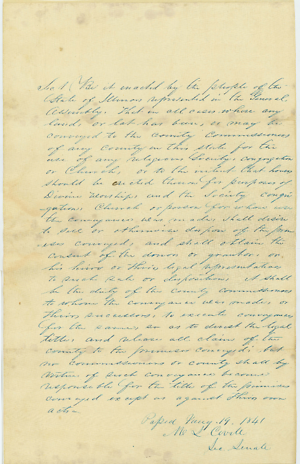 Sec 1 Be it enacted by the people of the
State of Illinois represented in the General
Assembly. That in all cases where any
land, or lot has been, or may be
conveyed to the county commissioners
of any county in this state for the
use of any religious Society, congregation
or Church, or to the intent that houses
should be erected thereon for purposes of
Divine Worship and the Society congre
gation, Church or person for whose use
the conveyance was made shall desire
to sell or otherwise dispose of the prem
ises conveyed, and shall obtain the
consent of the donor or grantor or
his heirs or their legal representatives
to such sale or disposition, it shall
be the duty of the county commissioners
to whom the conveyance was made or
their successors to execute conveyances
for the same so as to divest the legal
title, and release all claims of the
county to the premises conveyed; but
no commissioner or county shall by
virtue of such conveyance become
responsible for the title of the premises
conveyed except as against their own
acts.
Passed 19. 1841
M. L. Covell
Sec. Senate